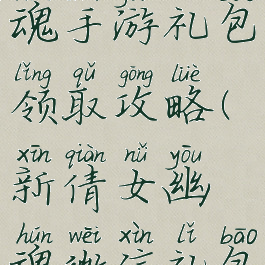 魂手游礼包
lǐng qǔ gōng lüè
领取攻略(
xīn qiàn nǚ yōu
新倩女幽
hún wēi xìn lǐ bāo
魂微信礼包